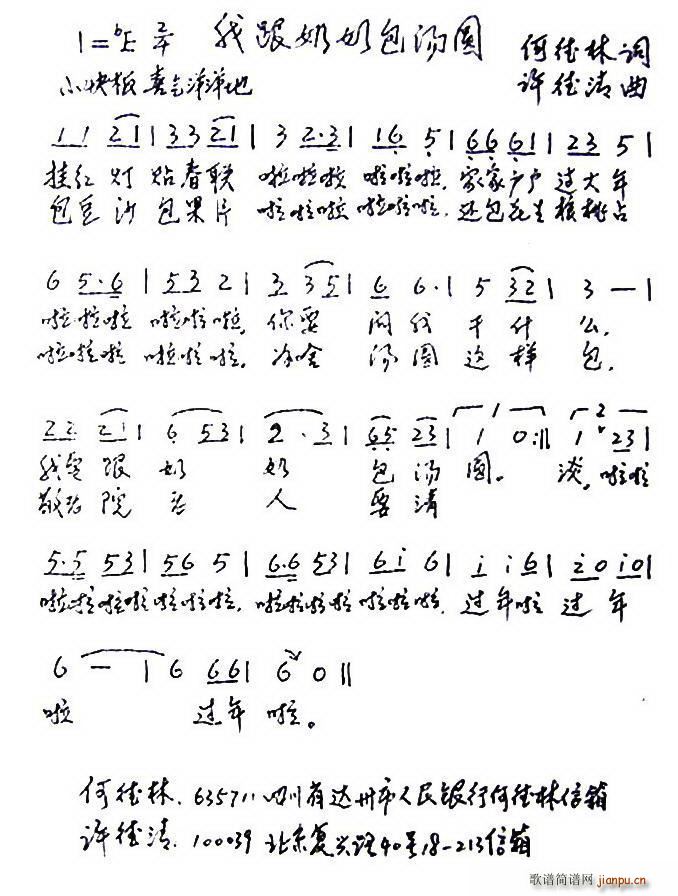 1=♭E 2/4 我跟奶奶包汤圆 何德林 词
小快板 喜气洋洋地 许德清 曲
1 1 2 1 | 3 3 2 1 | 3 2·3 | 1 6 5 | 6 6 6 1 | 2 3 5 |
挂红灯 贴春联 啦啦啦 啦啦啦, 家家户户过大年
包豆沙 包果片 啦啦啦 啦啦啦, 还包花生核桃
6 5·6 | 5 3 2 | 3 3 5 | 6 6· | 5 3 2 | 3 — |
啦啦啦 啦啦啦, 你要问我干什么,
啦啦啦 啦啦啦, 汤圆这样包,
2 2 2 1 | 6 5 3 | 2·3 | 6 5 2 3 | 1 0 :|| 1 2 3 |
我要跟奶奶包汤圆。 淡, 啦啦
敬老院老人要清
5·5 5 3 | 5 6 5 | 6·6 5 3 | 6 i 6 | i i 6 | 2 0 i 0 |
啦啦啦啦 啦啦啦, 啦啦啦啦 啦啦啦, 过年啦 过年
6 — | 6 6 6 | 6 0 ||
啦 过年啦。
何德林. 635711 四川省达州市人民银行何德林信箱
许德清. 100039 北京复兴路40号18-213信箱
歌谱简谱网
jianpu.cn